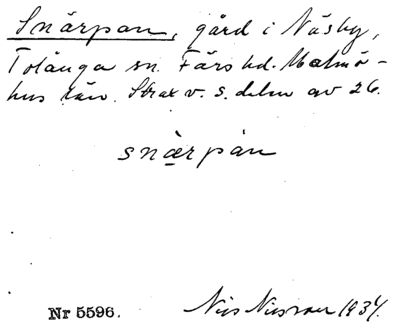 Snärpan, gård i Näsby,
Tolånga sn. Färs hd. Malmö-
hus län. Strax v. s. delen av 26.
snärpàn
Nr 5596.
Nils Nilsson 1934.